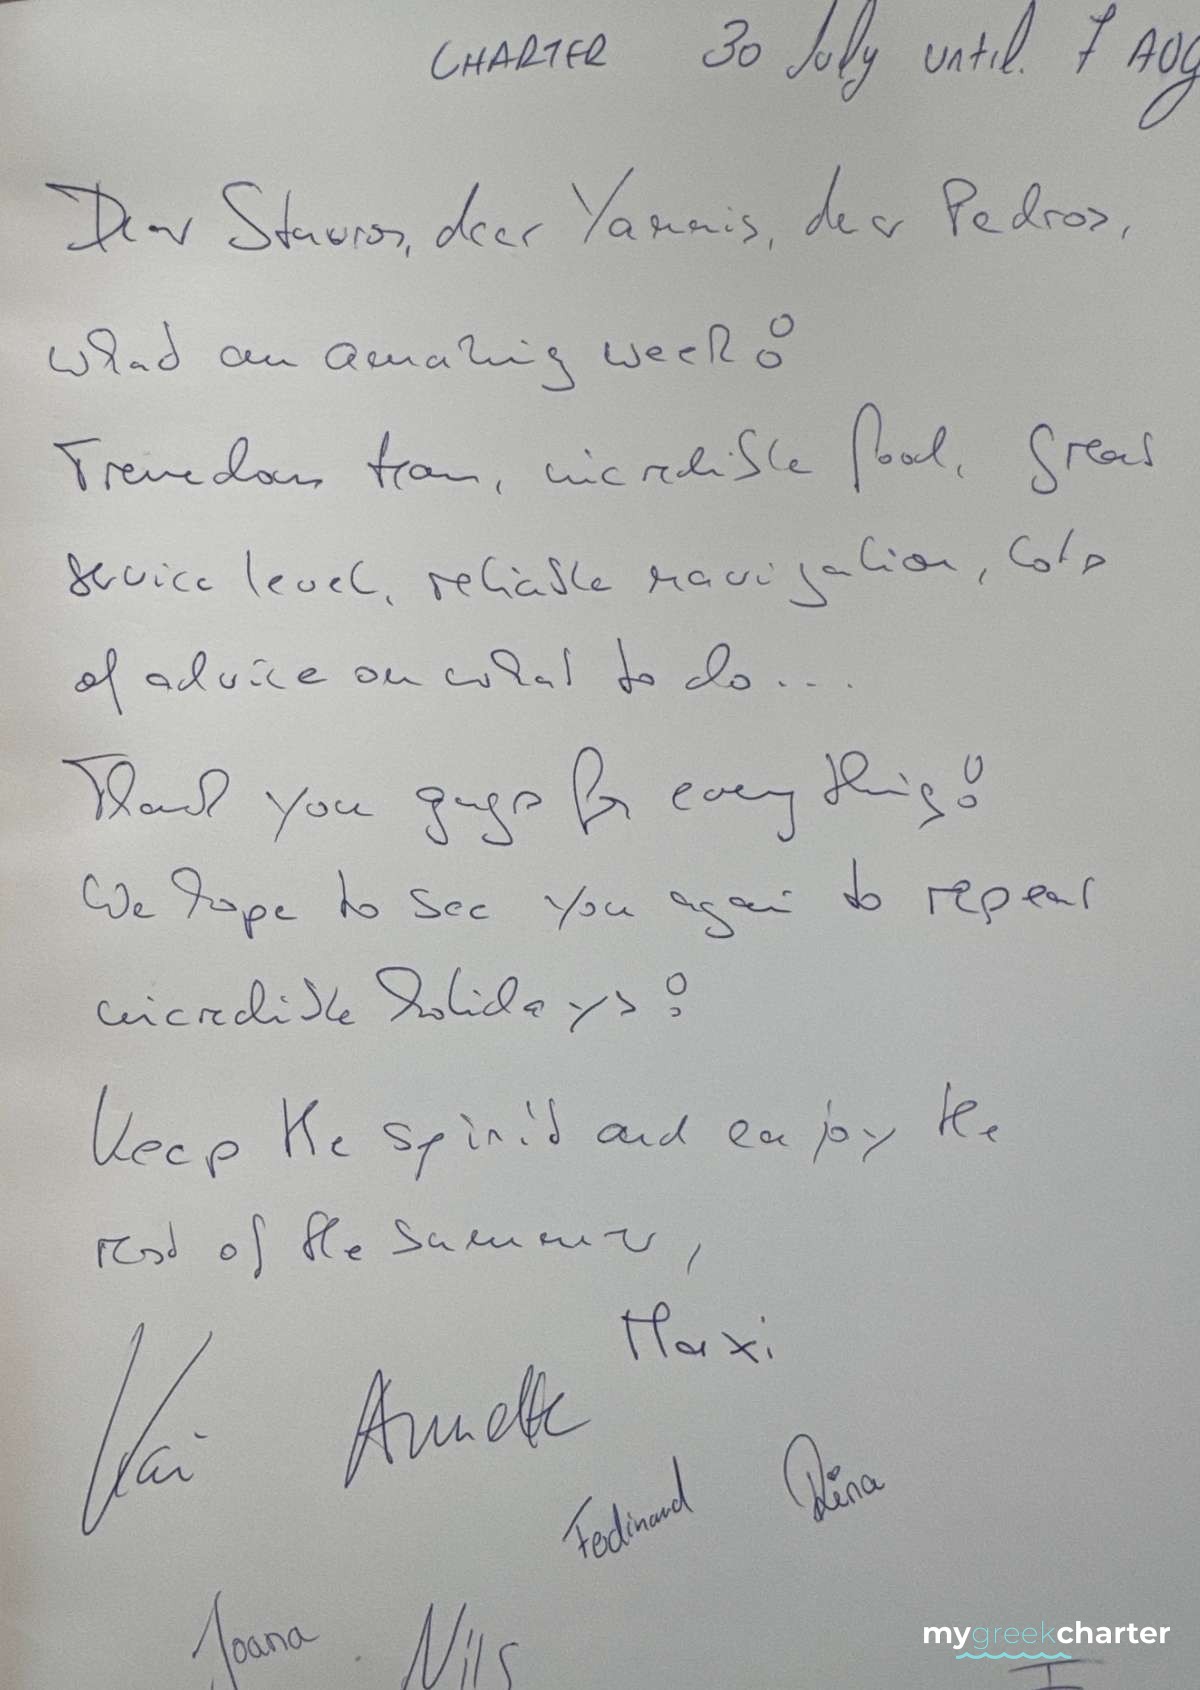 CHARTER 30 July until. 7 AUG
Dear Stavros, dear Yannis, dear Pedros,
what an amazing week!
Tremendous team, incredible food, great
service level, reliable navigation, lots
of advice on what to do...
Thank you guys for everything!
We hope to see you again to repeat
incredible holidays!
Keep the spirit and enjoy the
rest of the summer,
Maxi
Kai Annette
Ferdinand Rina
Joana Nils
mygreekcharter